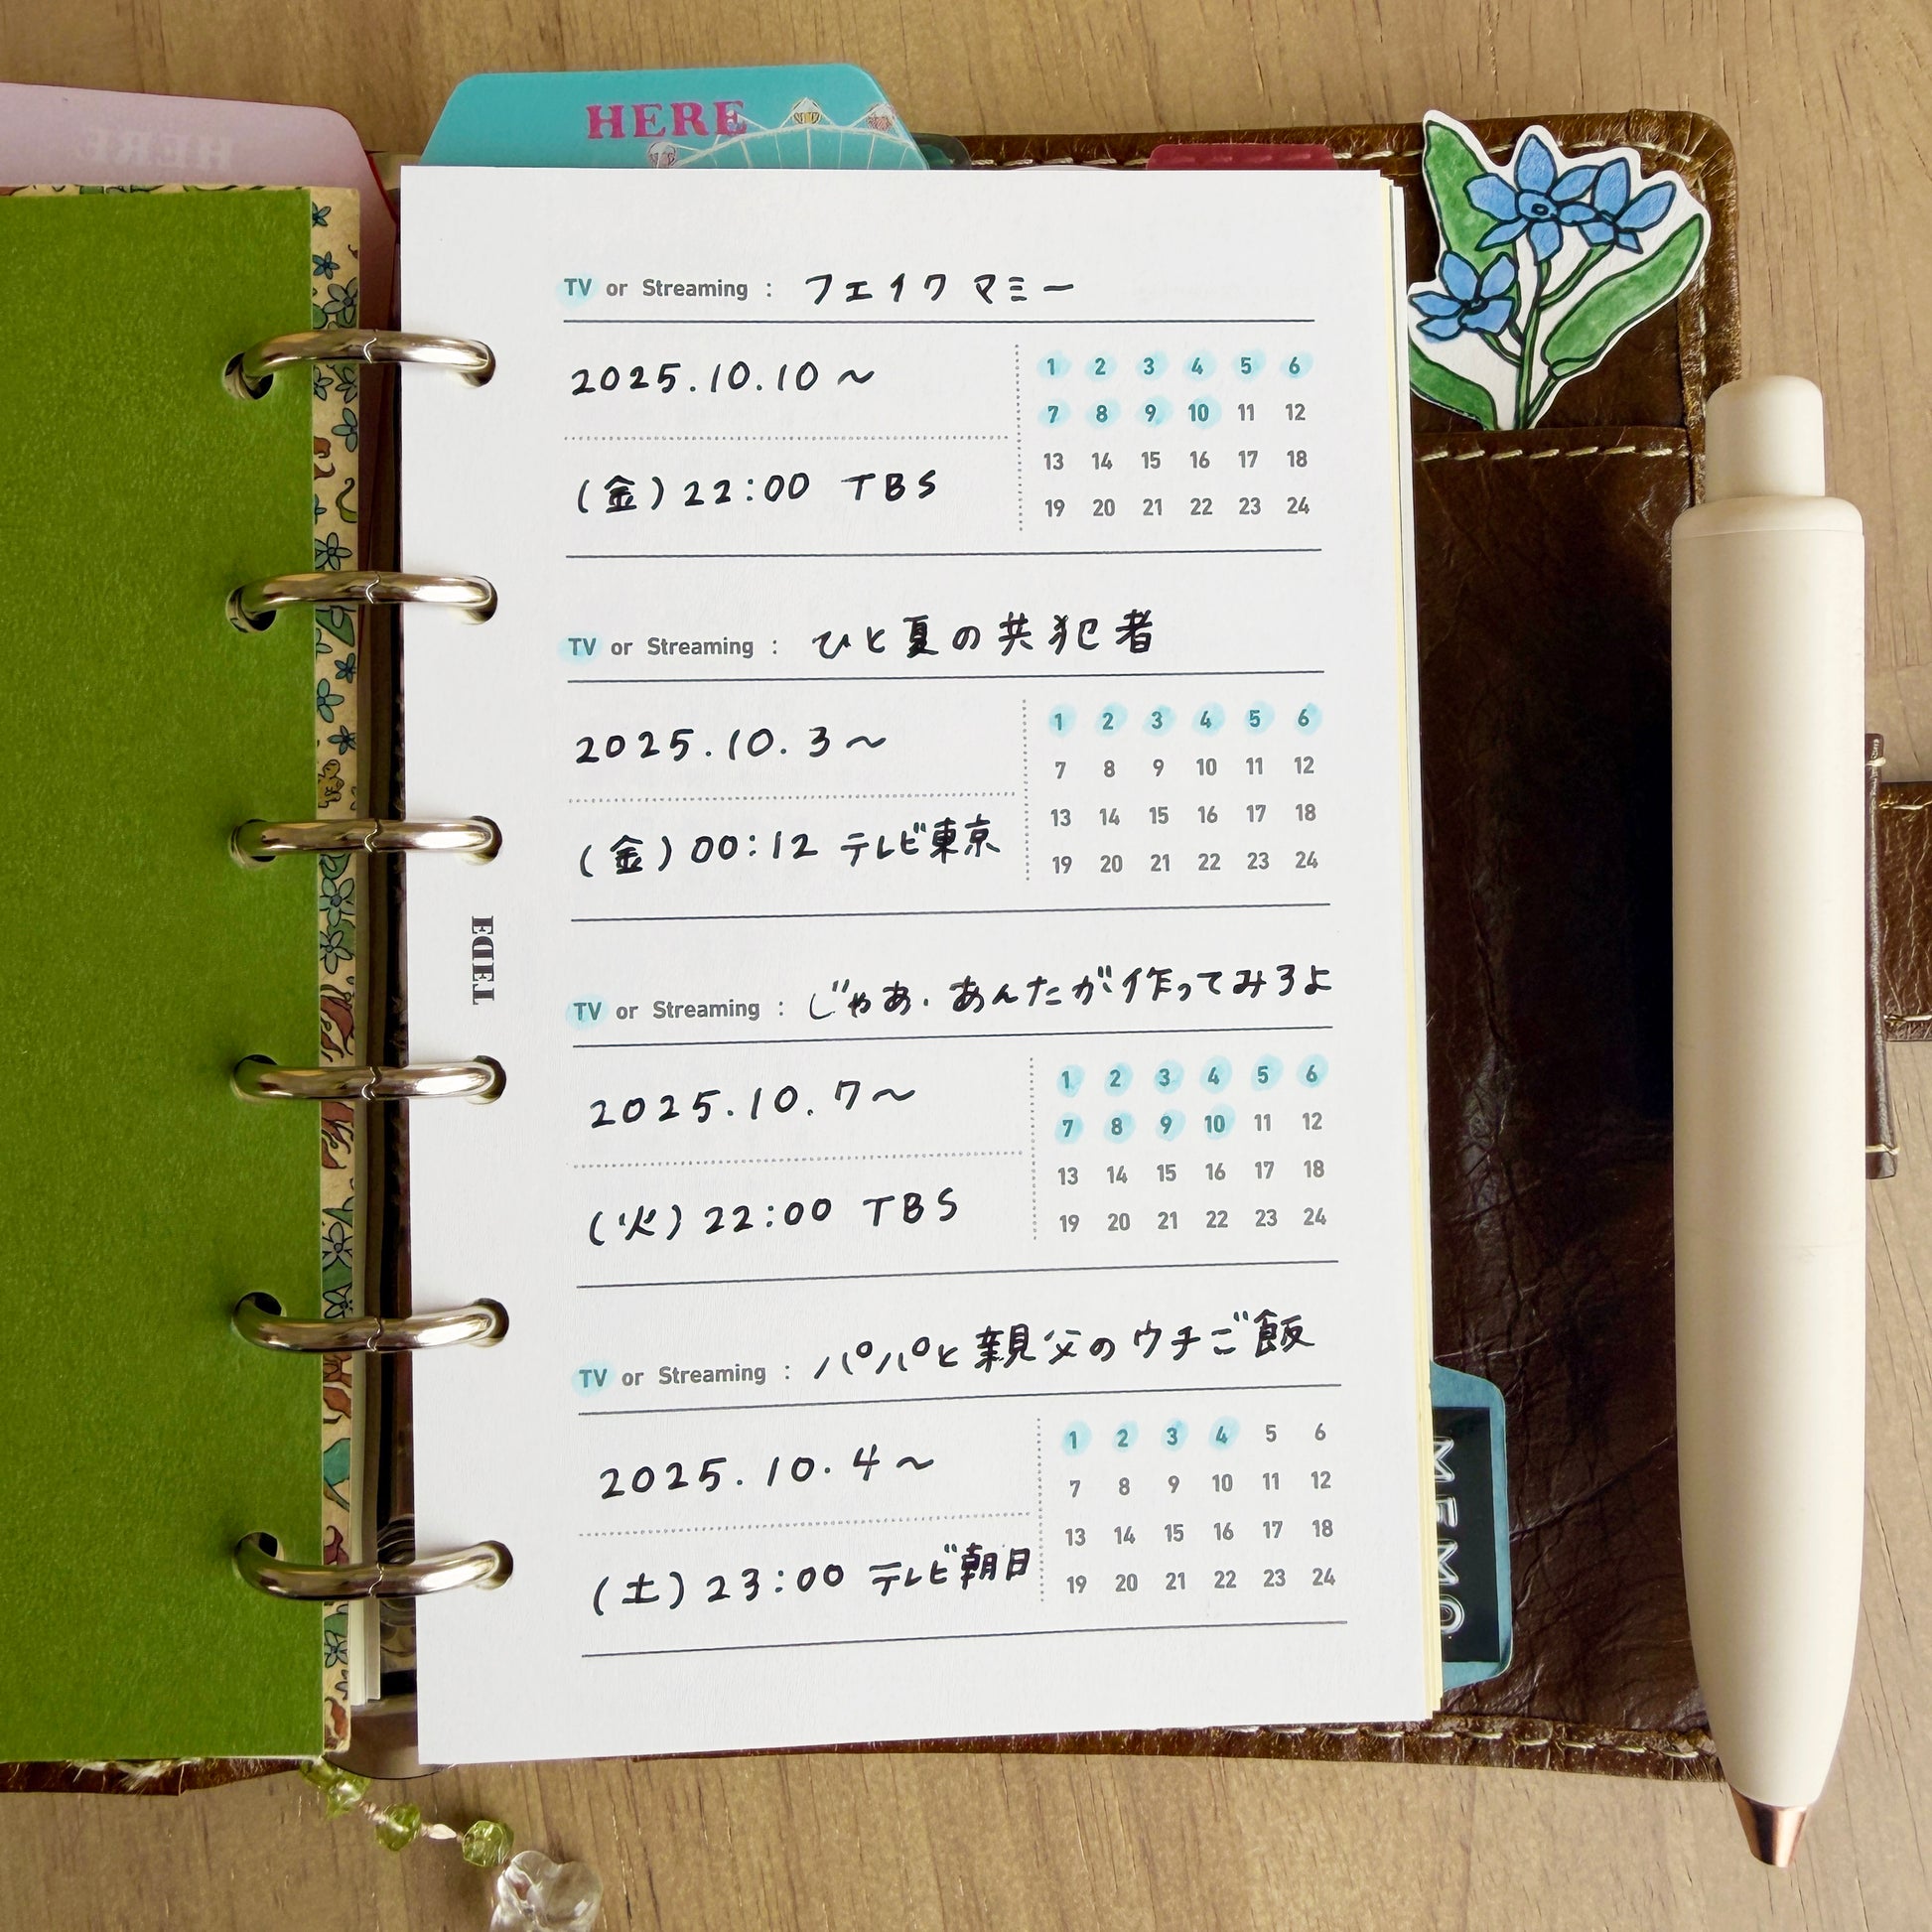 HERE
HERE
TV or Streaming : フェイクマミー
2025.10.10～
1 2 3 4 5 6
7 8 9 10 11 12
(金) 22:00 TBS
13 14 15 16 17 18
19 20 21 22 23 24
TV or Streaming : ひと夏の共犯者
2025.10.3～
1 2 3 4 5 6
7 8 9 10 11 12
(金) 00:12 テレビ東京
13 14 15 16 17 18
19 20 21 22 23 24
TV or Streaming : じゃあ、あんたが作ってみろよ
2025.10.7～
1 2 3 4 5 6
7 8 9 10 11 12
(火) 22:00 TBS
13 14 15 16 17 18
19 20 21 22 23 24
TV or Streaming : パパと親父のウチご飯
2025.10.4～
1 2 3 4 5 6
7 8 9 10 11 12
(土) 23:00 テレビ朝日
13 14 15 16 17 18
19 20 21 22 23 24
TEDE
MEMO